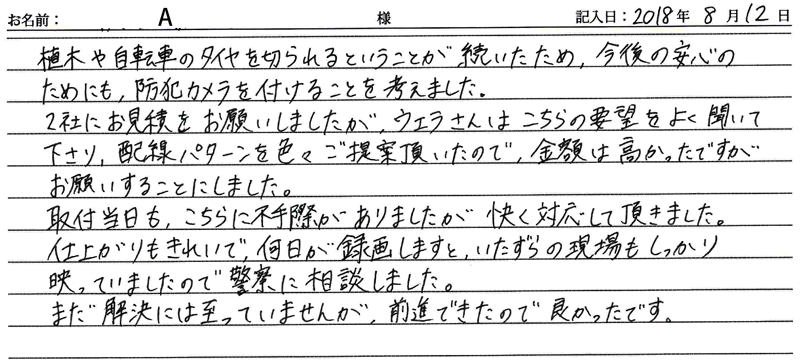 お名前： A 様 記入日：2018年 8月12日
植木や自転車のタイヤを切られるということが続いたため、今後の安心の
ためにも、防犯カメラを付けることを考えました。
2社にお見積をお願いしましたが、ウェラさんはこちらの要望をよく聞いて
下さり、配線パターンを色々ご提案頂いたので、金額は高かったですが
お願いすることにしました。
取付当日も、こちらに不手際がありましたが快く対応して頂きました。
仕上がりもきれいで、何日か録画しますと、いたずらの現場もしっかり
映っていましたので警察に相談しました。
まだ解決には至っていませんが、前進できたので良かったです。